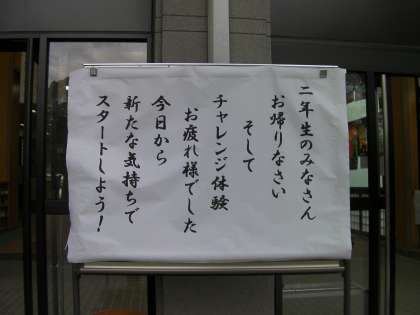 二年生のみなさん
お帰りなさい
そして
チャレンジ体験
お疲れ様でした
今日から
新たな気持ちで
スタートしよう！